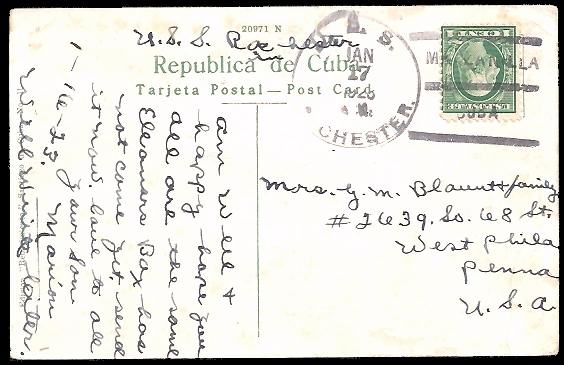 20971 N
U.S.S. Rochester
Republica de Cuba
Tarjeta Postal — Post Card
U. S. S.
JAN
17
1923
CHESTER.
MANZANILLA
CUBA
am well &
happy hope you
all are the same
Eleanors Box has
not come yet, send
it now. Love to all
Your Son
Marion
1-16-23.
Will write later.
Mrs. G. M. Blaunt & family
# 2639. So. 68 St.
West Phila
Penna
U. S. A.